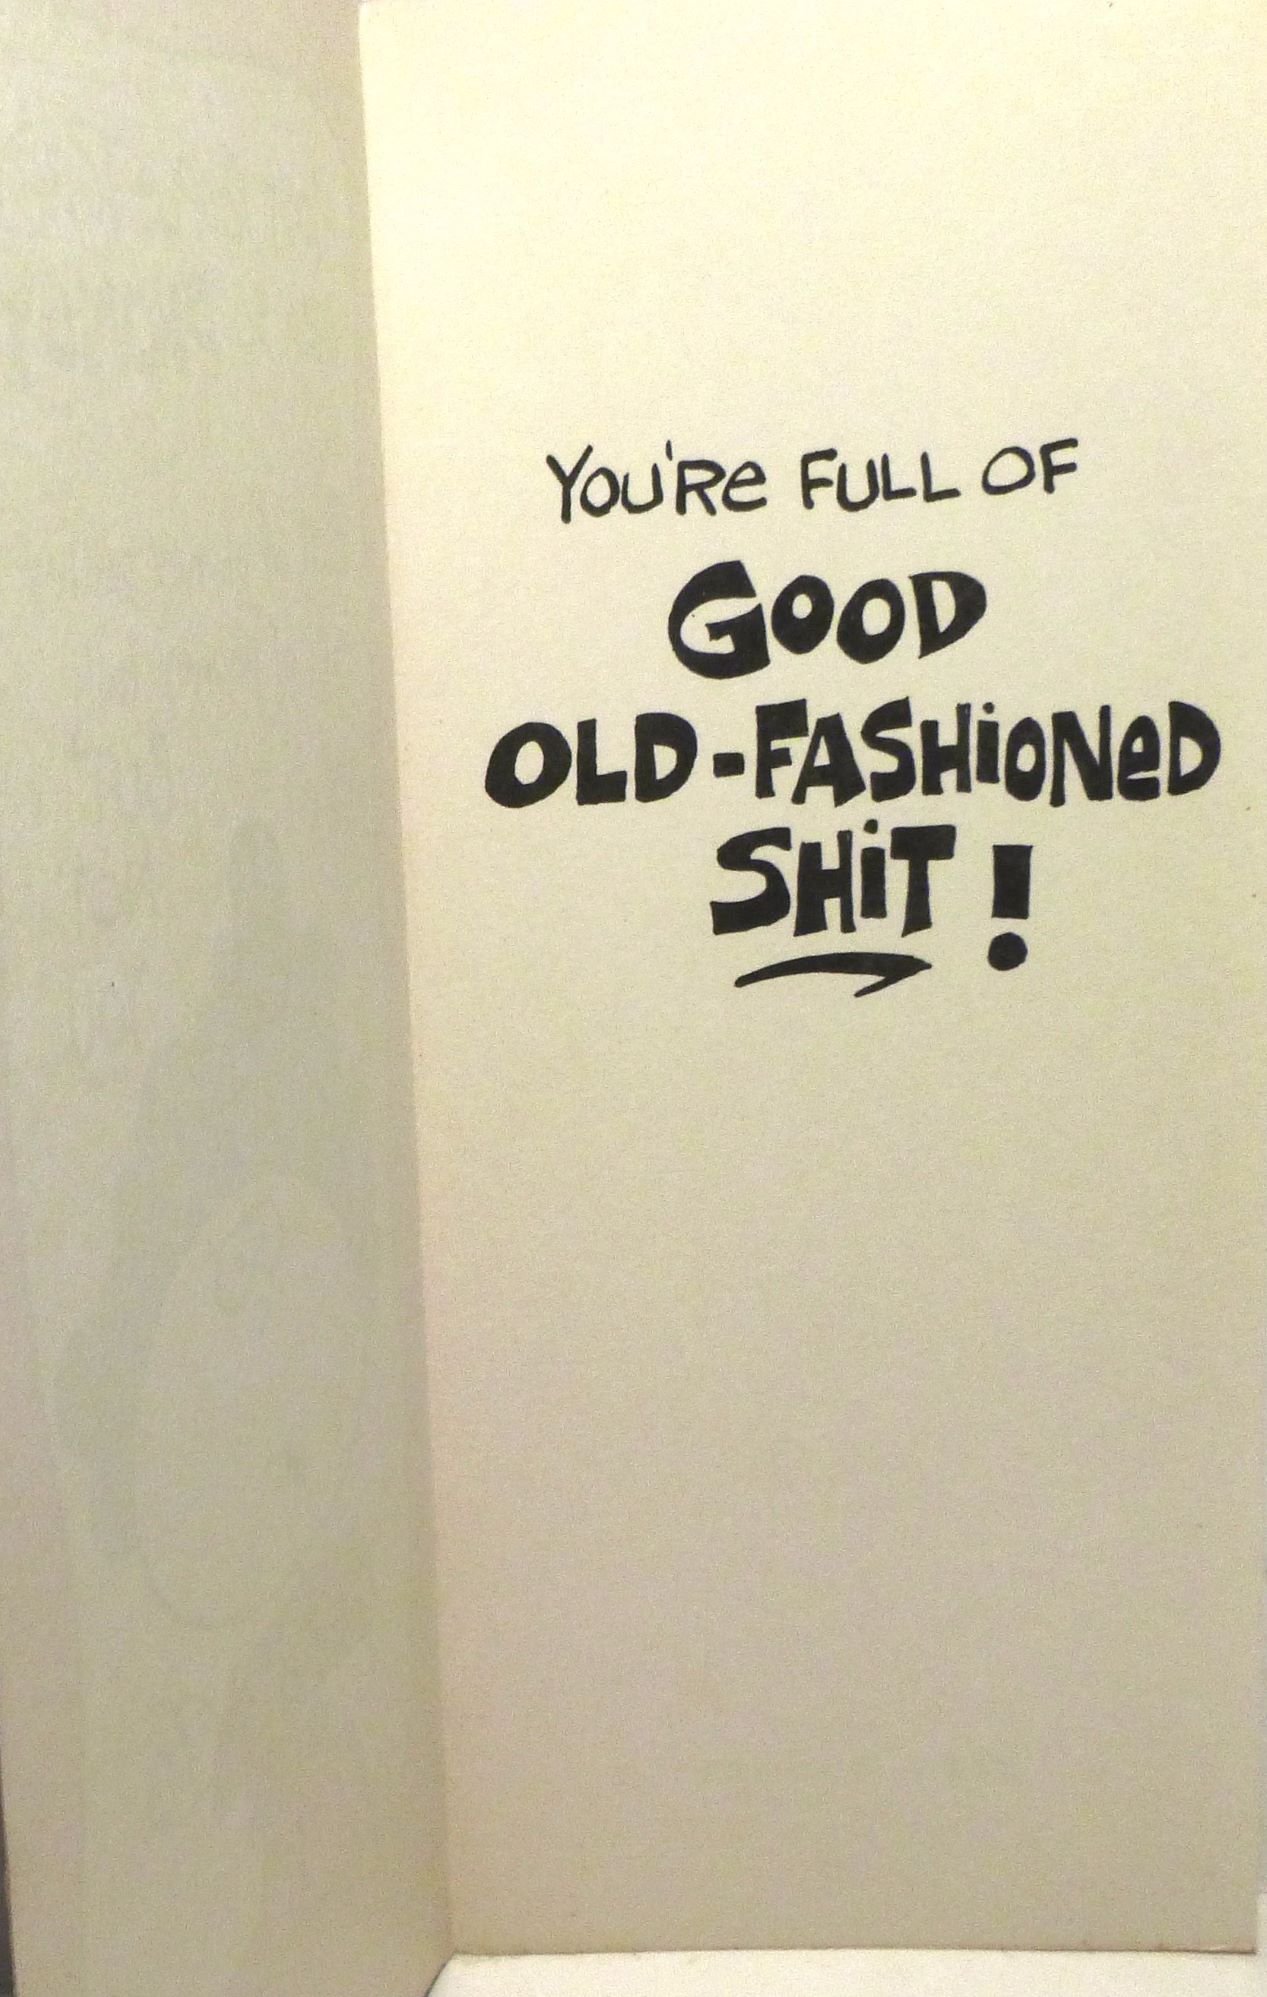 YOU'Re FULL OF
GOOD
OLD-FASHiONeD
SHiT!